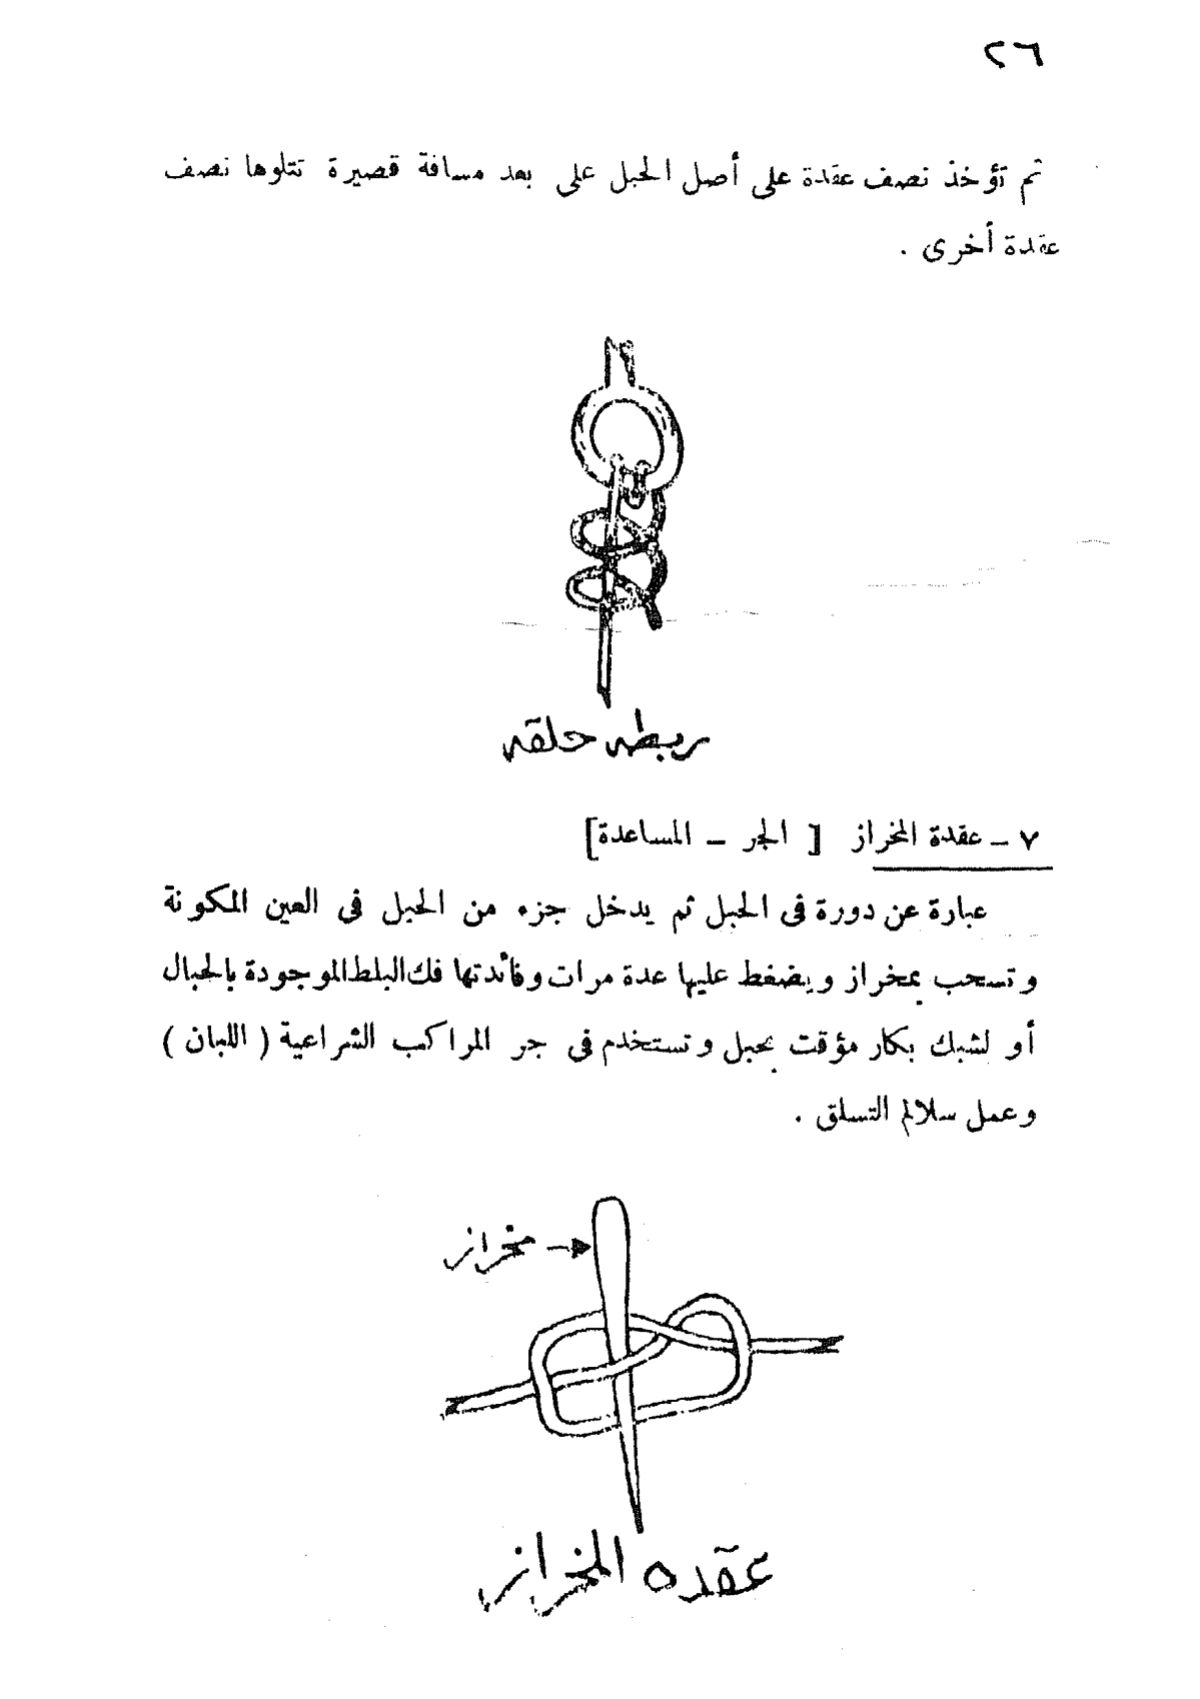 ٢٦
ثم تؤخذ نصف عقدة على أصل الحبل على بعد مسافة قصيرة تتلوها نصف
عقدة أخرى .
ربطه حلقه
٧ – عقدة المخراز [ الجر – المساعدة]
عبارة عن دورة فى الحبل ثم يدخل جزء من الحبل فى العين المكونة
وتسحب بمخراز ويضغط عليها عدة مرات وفائدتها فك البلط الموجودة بالحبال
أو لشبك بكار مؤقت بحبل وتستخدم فى جر المراكب الشراعية ( اللبان )
وعمل سلالم التسلق .
مخراز
عقده المخراز